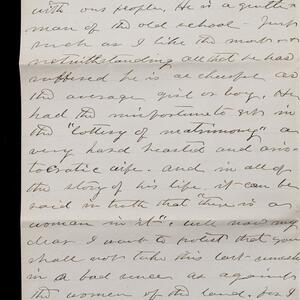 with our people. He is a gentle-
man of the old school - just
such as I like the most - &
notwithstanding all that he has
suffered he is as cheerful as
the average girl or boy. He
had the misfortune to get in
the "lottery of matrimony" a
very hard hearted and aris-
tocratic wife. and in all of
the story of his life it can be
said in truth that "there is a
woman in it". Well now my
dear I want to protest that you
shall not take this last remark
in a bad sense as against
the women of the land. for I